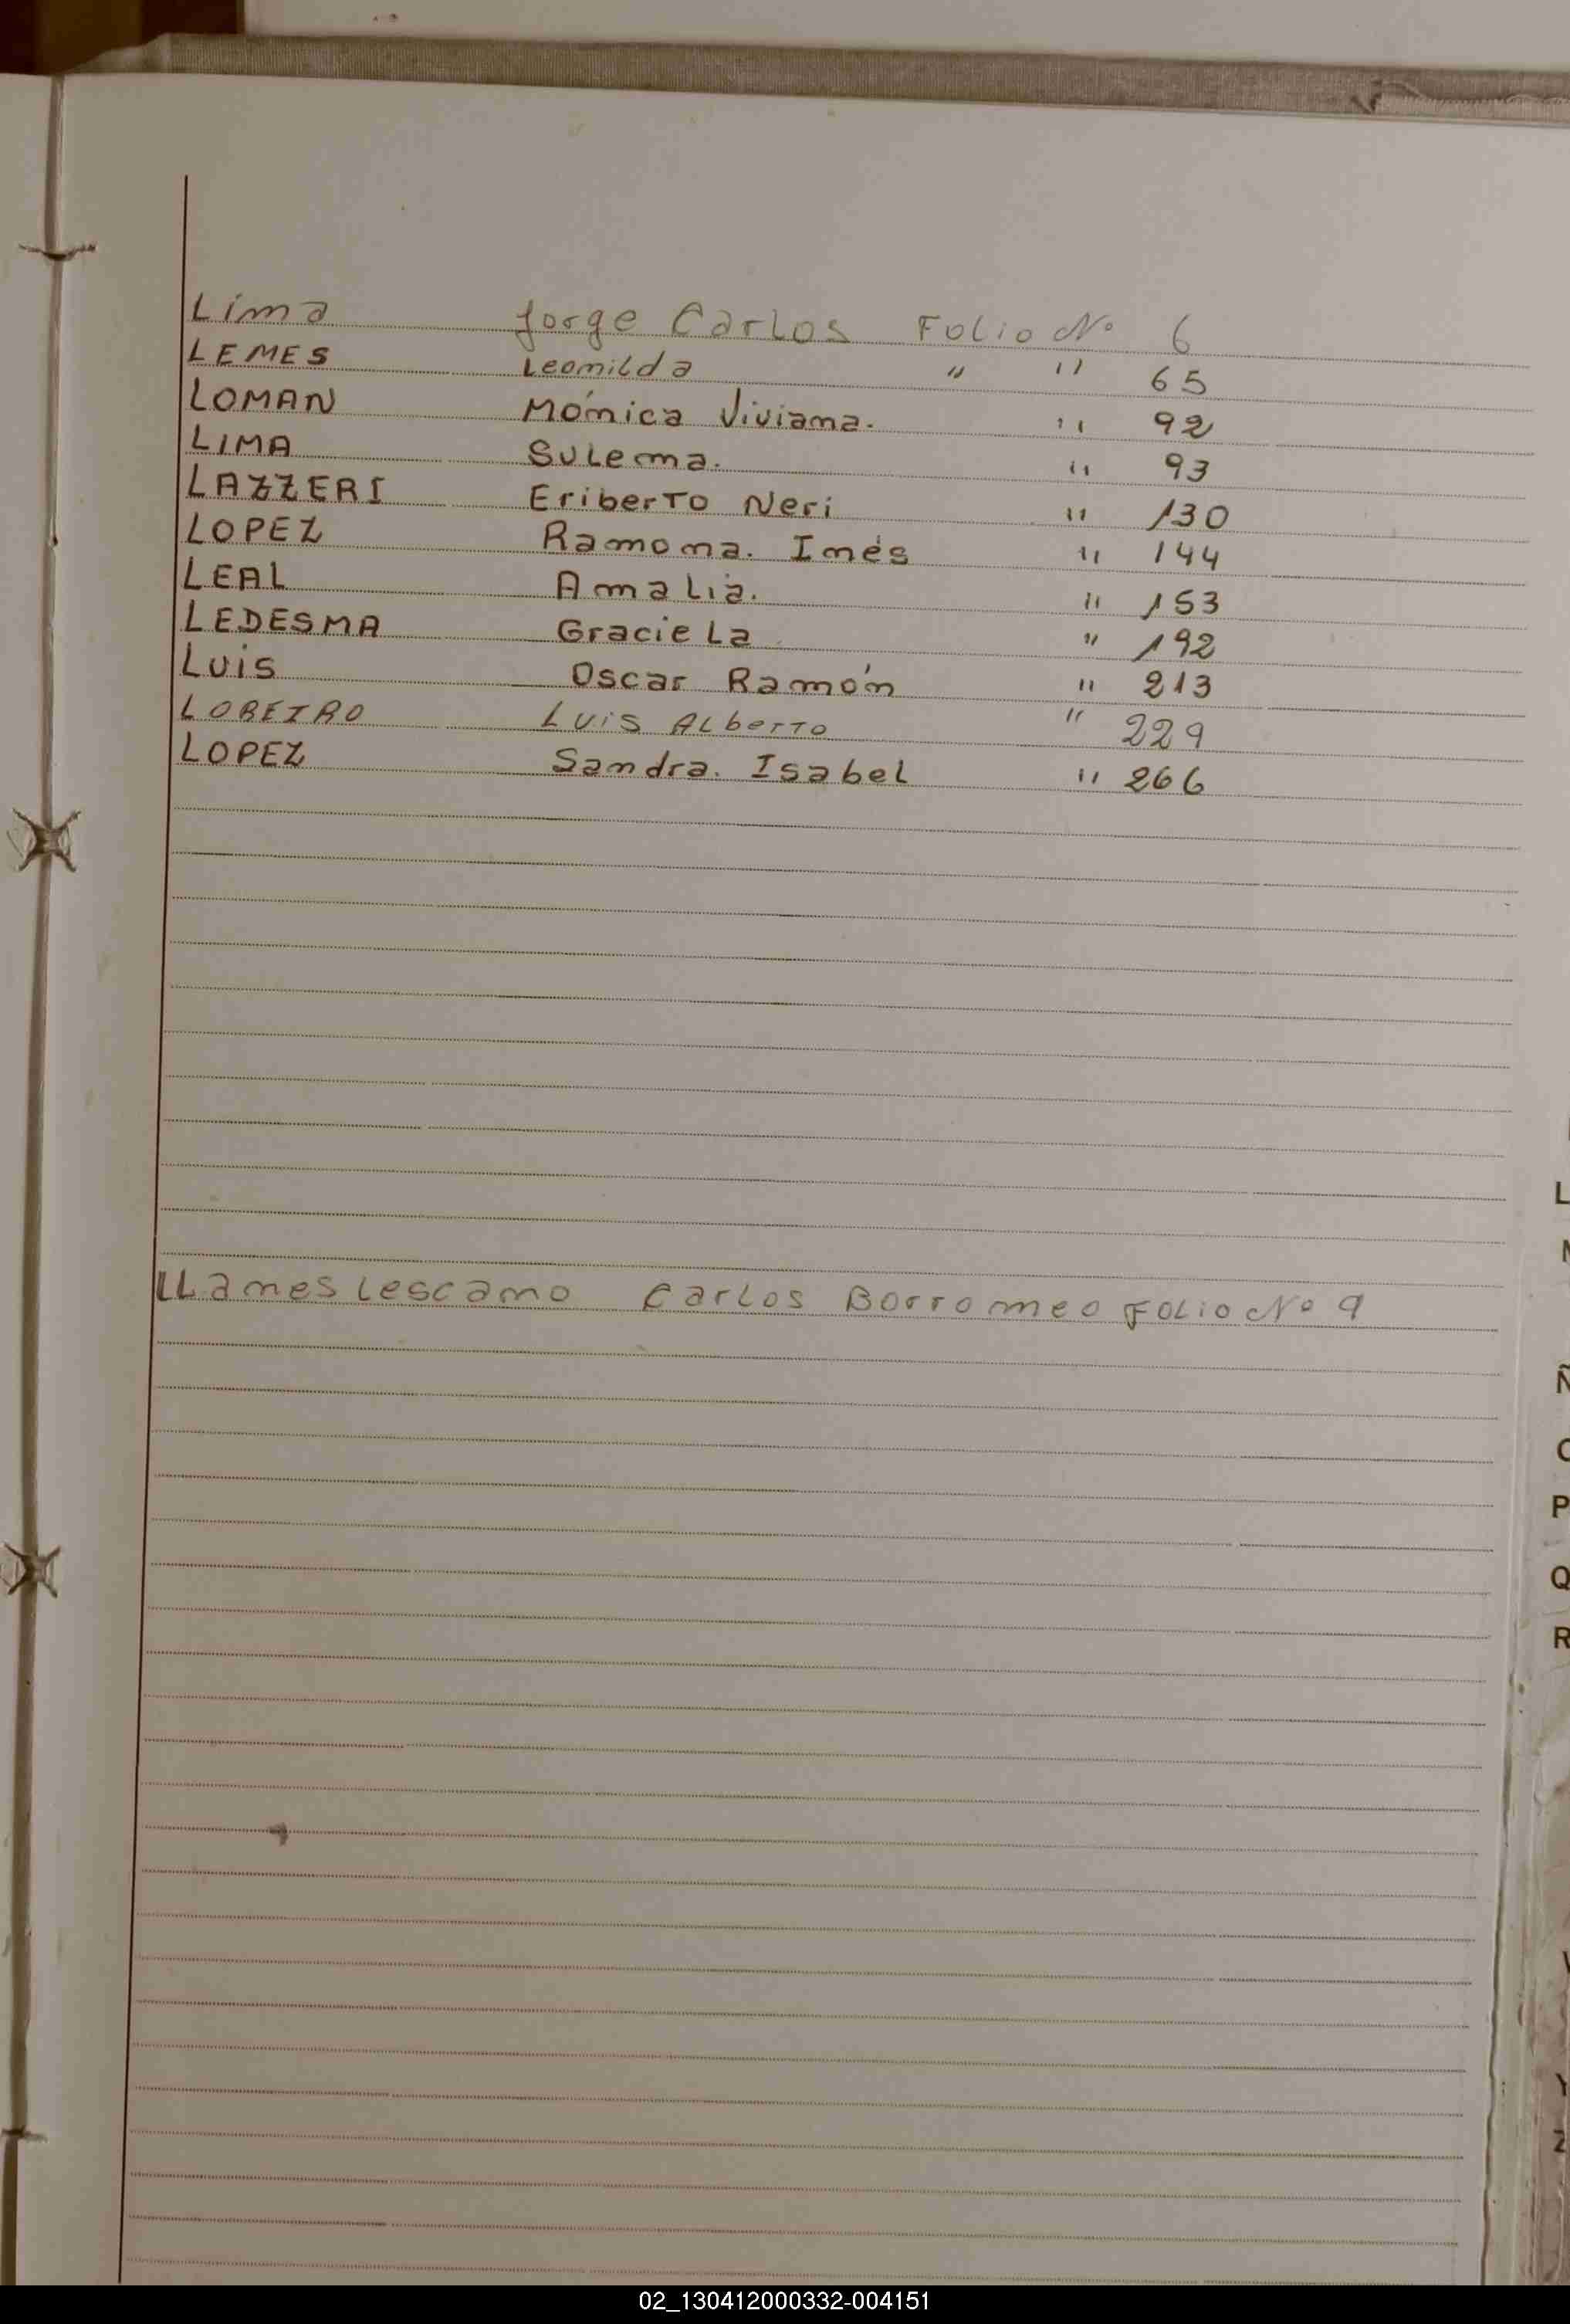 Lima Jorge Carlos Folio Nº 6
LEMES Leonilda " " 65
LOMAN Mónica Viviana. " 92
LIMA Sulema. " 93
LAZZERI Eriberto Neri " 130
LOPEZ Ramona. Inés " 144
LEAL Amalia. " 153
LEDESMA Graciela " 192
Luis Oscar Ramón " 213
LOREIRO Luis Alberto " 229
LOPEZ Sandra. Isabel " 266
L
Llanes Lescano Carlos Borromeo Folio Nº 9
Ñ
P
Q
R
Y
Z
02_130412000332-004151